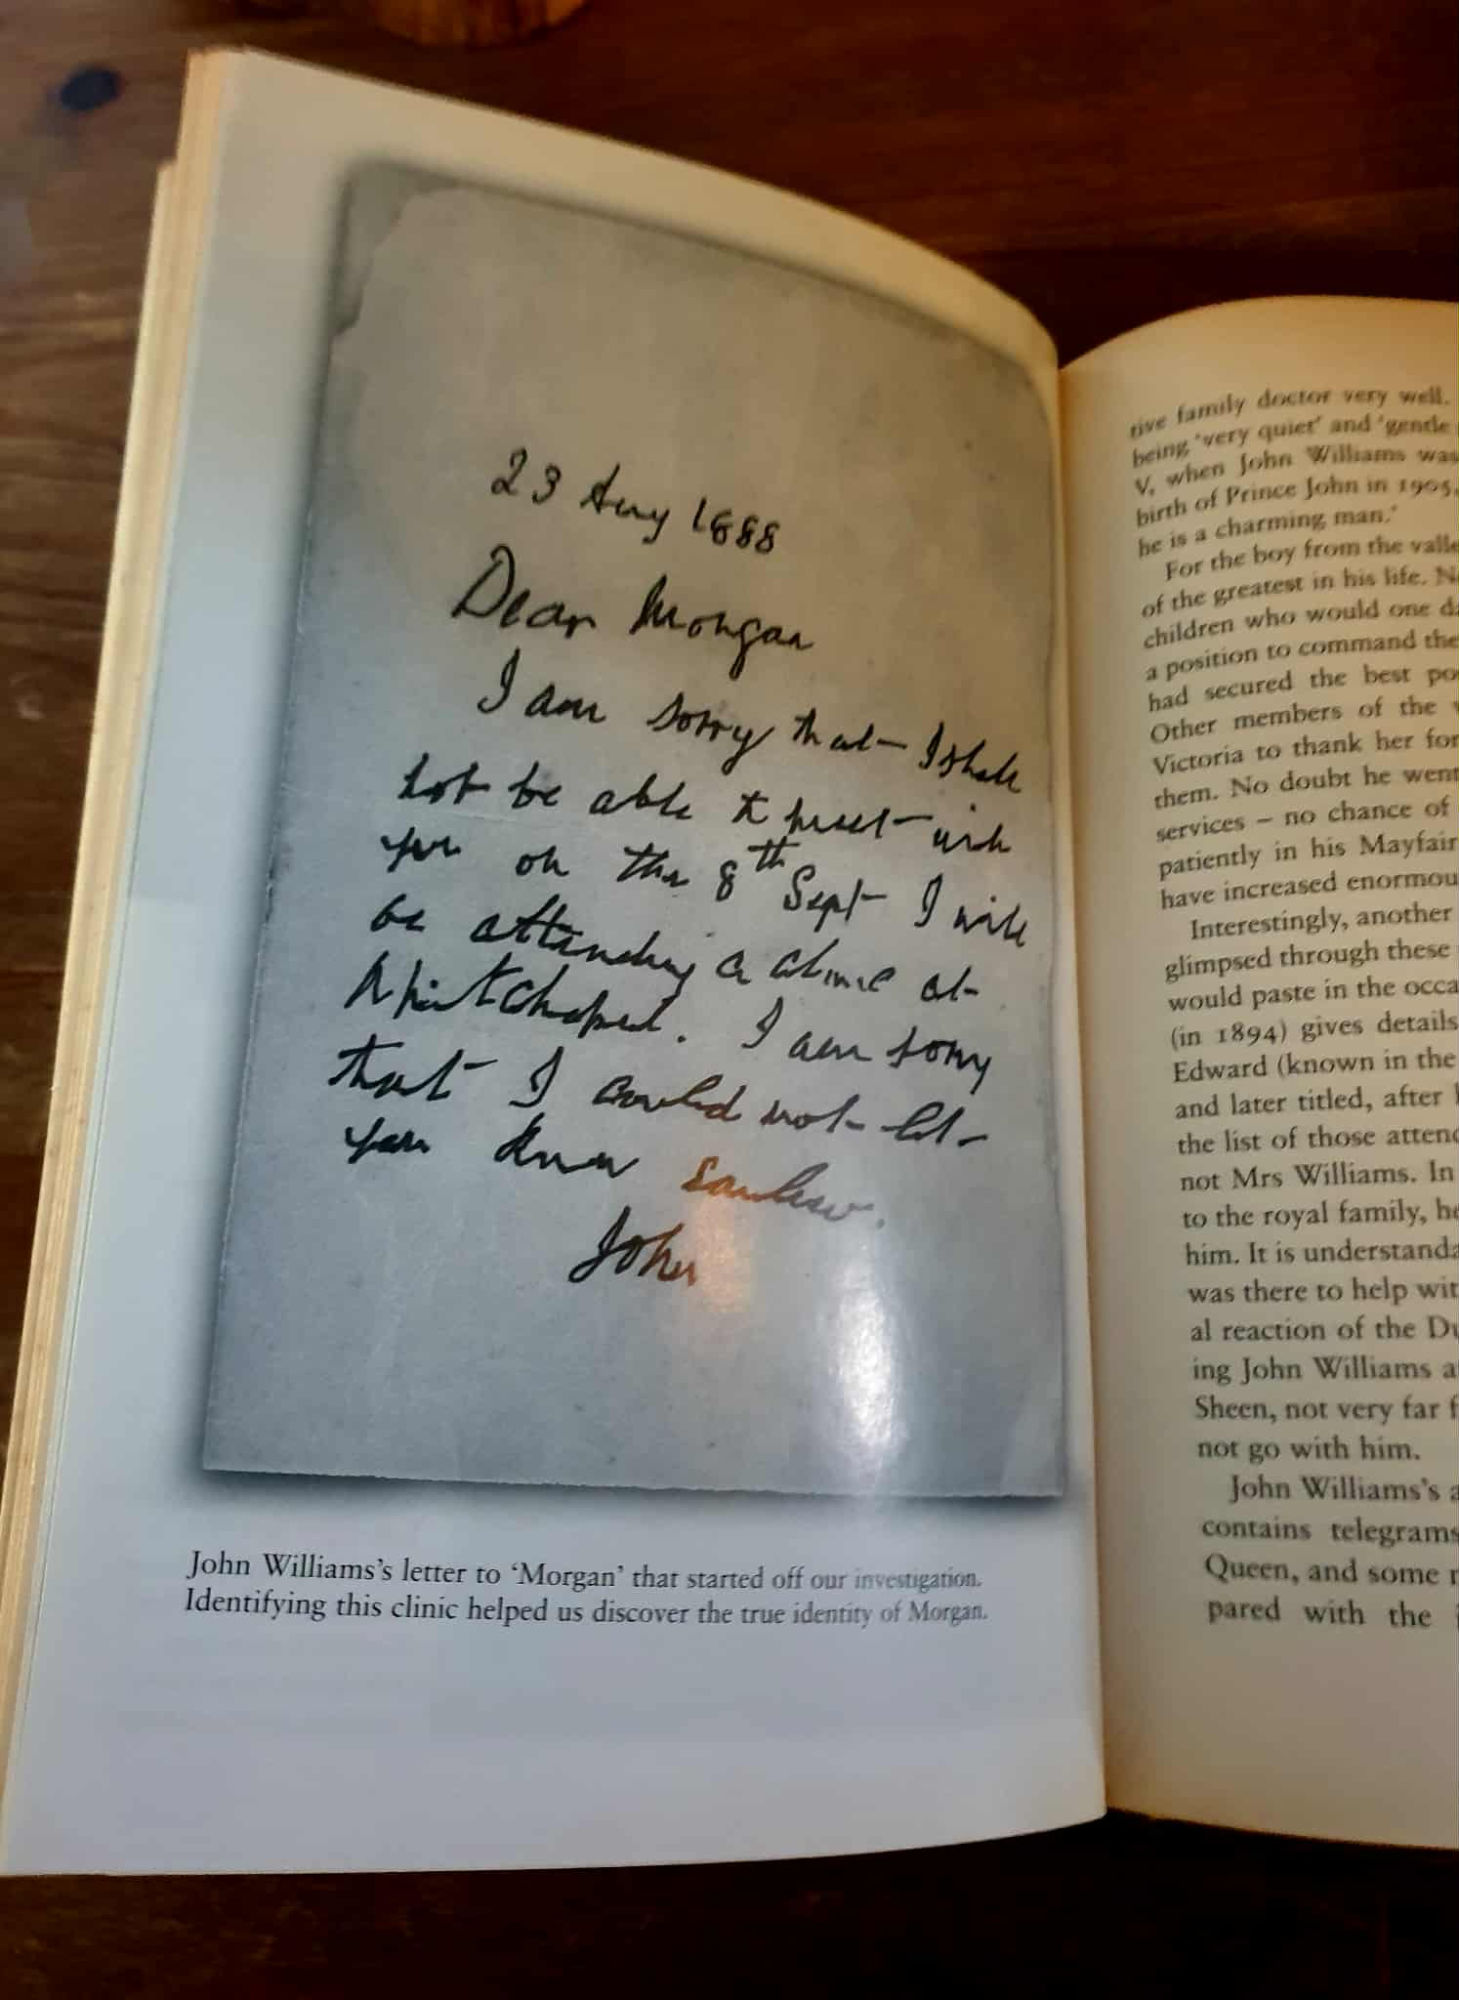 23 Aug 1888
Dear Morgan
I am sorry that I shall
not be able to meet with
you on the 8th Sept I will
be attending a clinic at
Whitchapel. I am sorry
that I could not let
you know sooner.
John
John Williams's letter to 'Morgan' that started off our investigation.
Identifying this clinic helped us discover the true identity of Morgan.
tive family doctor very well.
being 'very quiet' and 'gentle
V, when John Williams was
birth of Prince John in 1905,
he is a charming man.'
For the boy from the valle
of the greatest in his life. N
children who would one d
a position to command the
had secured the best po
Other members of the
Victoria to thank her for
them. No doubt he went
services – no chance of
patiently in his Mayfair
have increased enormou
Interestingly, another
glimpsed through these
would paste in the occa
(in 1894) gives details
Edward (known in the
and later titled, after
the list of those attend
not Mrs Williams. In
to the royal family, he
him. It is understanda
was there to help wit
al reaction of the Du
ing John Williams a
Sheen, not very far f
not go with him.
John Williams's a
contains telegrams
Queen, and some
pared with the